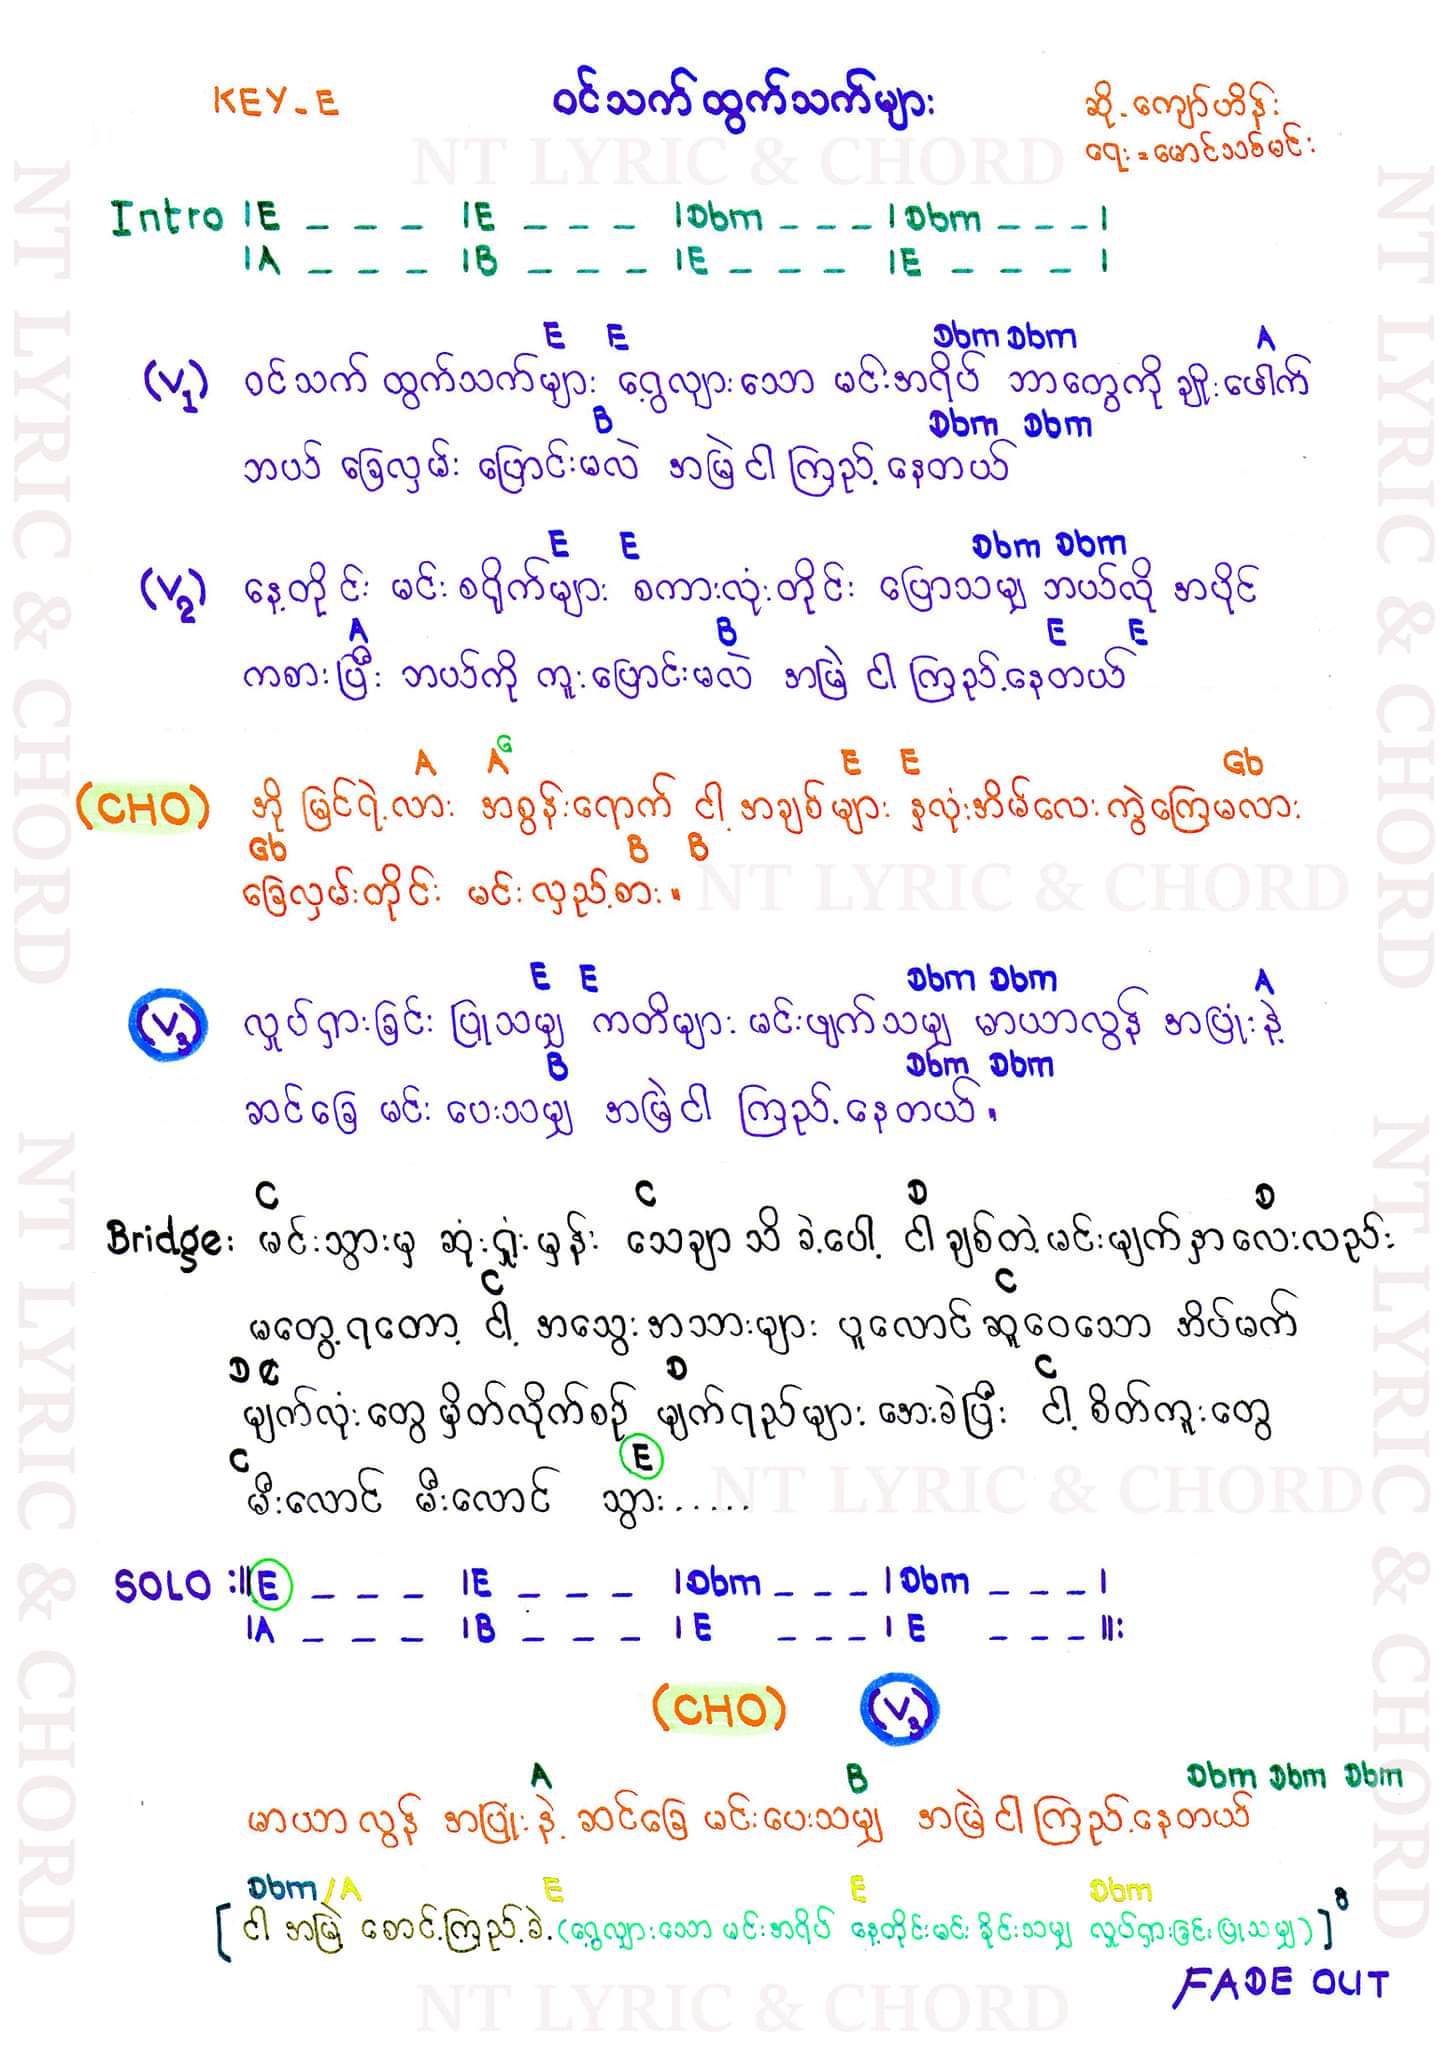 KEY - E ဝင်သက်ထွက်သက်များ ဆို - ကျော်ဟိန်း
ရေး = မောင်သစ်မင်း
NT LYRIC & CHORD
Intro |E _ _ _ |E _ _ _ |Dbm _ _ _ |Dbm _ _ _ |
|A _ _ _ |B _ _ _ |E _ _ _ |E _ _ _ |
E E Dbm Dbm A
(V1) ဝင်သက် ထွက်သက်များ ရွေ့လျားသော မင်းအရိပ် ဘာတွေကို ချိုးဖေါက်
B Dbm Dbm
ဘယ် ခြေလှမ်း ပြောင်းမလဲ အမြဲငါကြည့်နေတယ်
E E Dbm Dbm
(V2) နေ့တိုင်း မင်းစရိုက်များ စကားလုံးတိုင်း ပြောသမျှ ဘယ်လို အပိုင်
A B E E
ကစားပြီး ဘယ်ကို ကူးပြောင်းမလဲ အမြဲ ငါကြည့်နေတယ်
A A G E E Gb
(CHO) အို မြင်ရဲ့လား အစွန်းရောက် ငါ့အချစ်များ နှလုံးအိမ်လေးကွဲကြေမလား
Gb B B
ခြေလှမ်းတိုင်း မင်းလှည့်စား။
NT LYRIC & CHORD
E E Dbm Dbm A
(V3) လှုပ်ရှားခြင်း ပြုသမျှ ကတိများ မင်းဖျက်သမျှ မာယာလွန် အပြုံးနဲ့
B Dbm Dbm
ဆင်ခြေ မင်း ပေးသမျှ အမြဲငါ ကြည့်နေတယ်။
C C D D
Bridge: မင်းသွားမှ ဆုံးရှုံးမှန်း သေချာသိခဲ့ပေါ့ ငါချစ်တဲ့မင်းမျက်နှာလေးလည်း
C C
မတွေ့ရတော့ ငါ့ အသွေးအသားများ ပူလောင်ဆူဝေသော အိပ်မက်
D C D C
မျက်လုံးတွေမှိတ်လိုက်စဉ် မျက်ရည်များ အေးခဲပြီး ငါ့စိတ်ကူးတွေ
C E
မီးလောင် မီးလောင် သွား......
NT LYRIC & CHORD
SOLO :||E _ _ _ |E _ _ _ |Dbm _ _ _ |Dbm _ _ _ |
|A _ _ _ |B _ _ _ |E _ _ _ |E _ _ _ ||:
(CHO) (V3)
A B Dbm Dbm Dbm
မာယာလွန် အပြုံးနဲ့ ဆင်ခြေ မင်းပေးသမျှ အမြဲငါကြည့်နေတယ်
Dbm/A E E Dbm
[ ငါ အမြဲ စောင့်ကြည့်ခဲ့ (ရွေ့လျားသော မင်းအရိပ် နေ့တိုင်းမင်း ခိုင်းသမျှ လှုပ်ရှားခြင်းပြုသမျှ) ]8
FADE OUT
NT LYRIC & CHORD
NT LYRIC & CHORD
NT LYRIC & CHORD
NT LYRIC & CHORD
NT LYRIC & CHORD